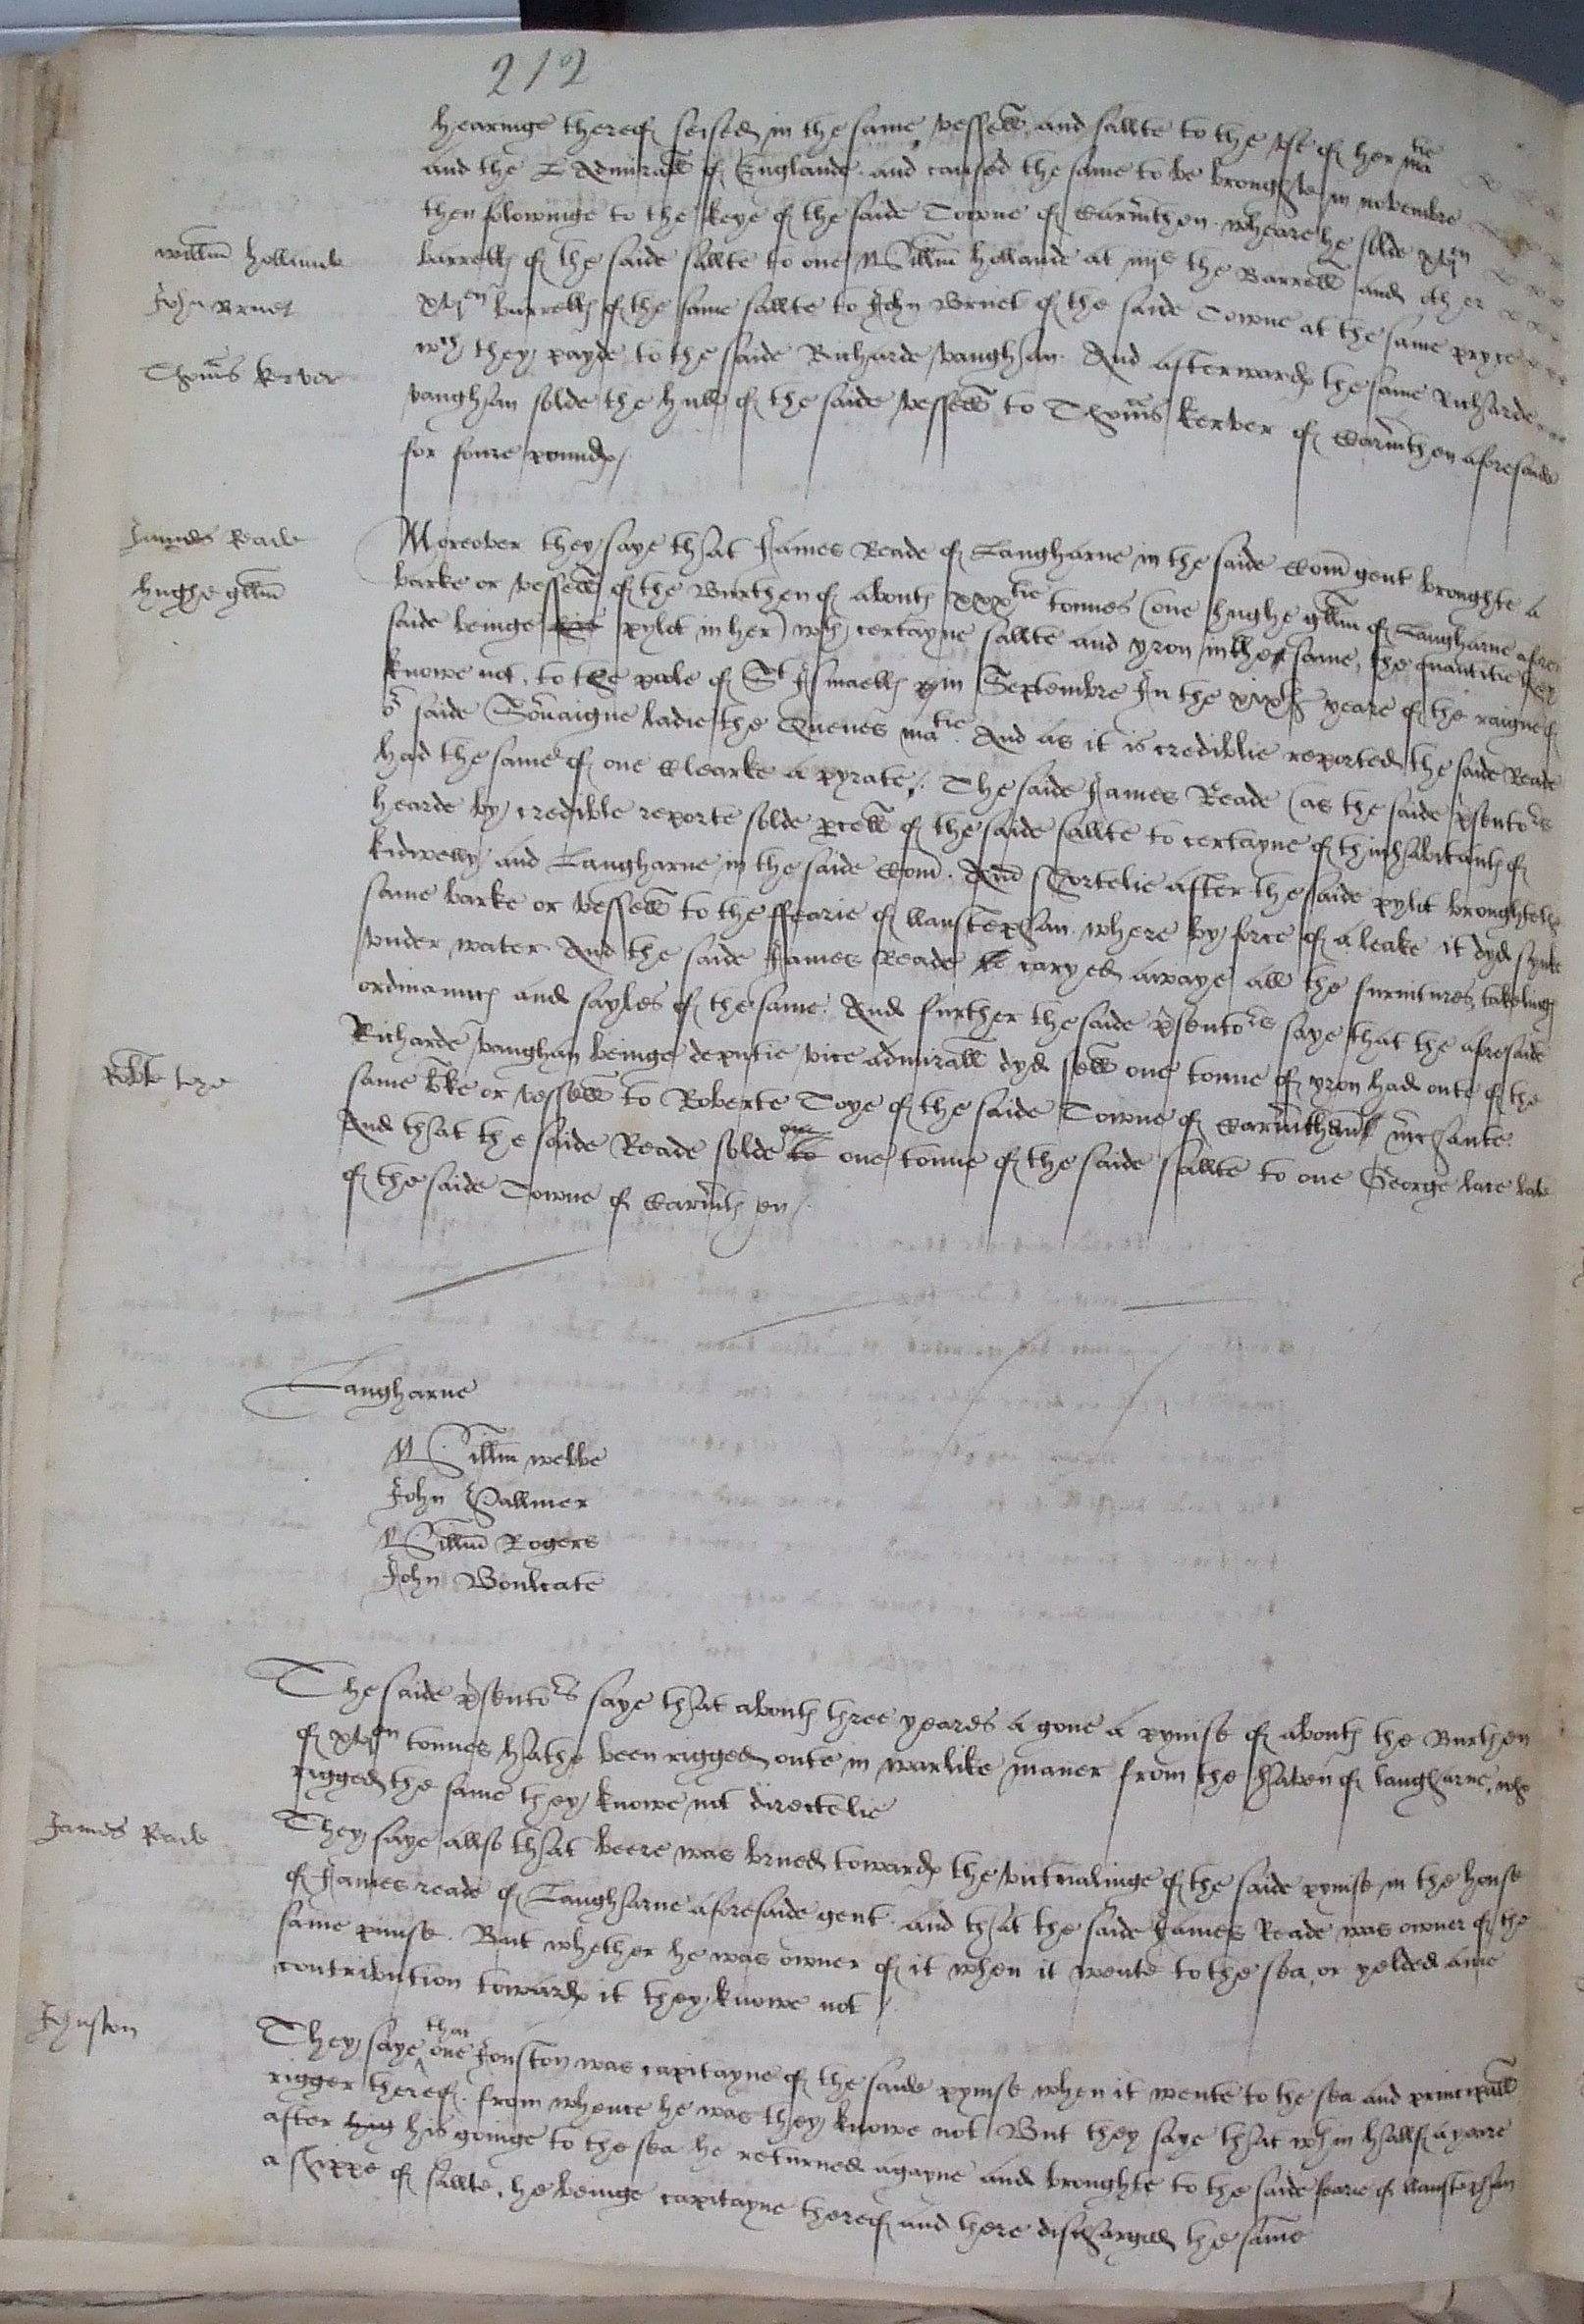 212
hearinge thereof seised in the same vessell and sallte to the use of her matie
and the L Admirall of Englande and caused the same to be broughte in novembre
then folowinge to the keye of the saide Towne of Carmthen. wheare he solde xvjen
Willm Hollande
barrells of the saide sallte to one Willm Hollande at iiijs the Barrell and other
John Bruet
xvjen barrells of the same sallte to John Bruet of the saide Towne at the same pryce
wch they payde to the saide Richarde vaughan. And afterwards the same Richarde
Thoms Kerver
vaughan solde the hull of the saide vessell to Thoms Kerver of Carmthen aforesaide
for foure pounds /.
James Reade
Moreover they saye that James Reade of Laugharne in the saide Com gent broughte a
Hughe gllm
barke or vessell of the Burthen of about xxxtie tonnes (one Hughe gllm of Laugharne afore
saide beinge pylot in her) wth certayne sallte and yron in the same, the quantitie they
knowe not, to the poole of St Ismaells in Septembre In the xixth yeare of the raigne of
or saide Soveraigne ladie the Quenes matie. And as it is crediblie reported the saide Reade
had the same of one Clearke a pyrate /. The saide James Reade (as the saide psentors
hearde by credible reporte solde pcell of the saide sallte to certayne of thinhabitants of
Kidwelly and Laugharne in the saide Com. And shortelie after the saide pylot broughte the
same barke or vessell to the ffearie of llanstephan where by force of a leake it dyd synke
under water. And the saide James Reade caryed awaye all the furnitures, takelings
ordinaunces and sayles of the same. And further the saide psentors saye that the aforesaide
Richarde vaughan beinge deputie vice admirall dyd sell one tonne of yron had oute of the
Robte toye
same bke or vessell to Roberte Toye of the saide Towne of Carmthen mchante
And that the saide Reade solde one tonne of the saide sallte to one George late
of the saide Towne of Carmthen /.
Laugharne
Willm Webbe
John Pallmer
Willm Rogers
John Boulcate
The saide psentors saye that about three yeares a gone a pynise of about the Burthen
of xvjen tonnes hathe been rigged oute in warlike maner from the haven of laugharne, who
rigged the same they knowe not directelie
James Reade
They saye allso that beere was brued towards the victualinge of the saide pynise in the house
of James reade of Laugharne aforesaide gent. and that the saide James Reade was owner of the
same pinise. But whether he was owner of it when it wente to the sea, or yelded anie
contribution towards it they knowe not /.
Jhnston
They saye that one Jonston was capitayne of the saide pynise when it wente to the sea and principall
rigger thereof. from whence he was they knowe not. But they saye that wthin hallf a yeare
after his goinge to the sea he returned agayne and broughte to the saide fearie of llanstephan
a shippe of sallte, he beinge capitayne thereof and here discharged the same